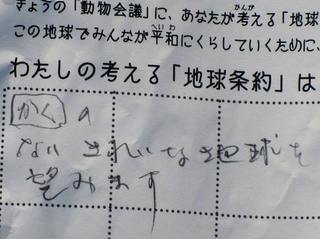 きょうの「動物会議」に、あなたが考える「地球
この地球でみんなが平和にくらしていくために、
わたしの考える「地球条約」は
かくの
ないきれいな地球を
望みます